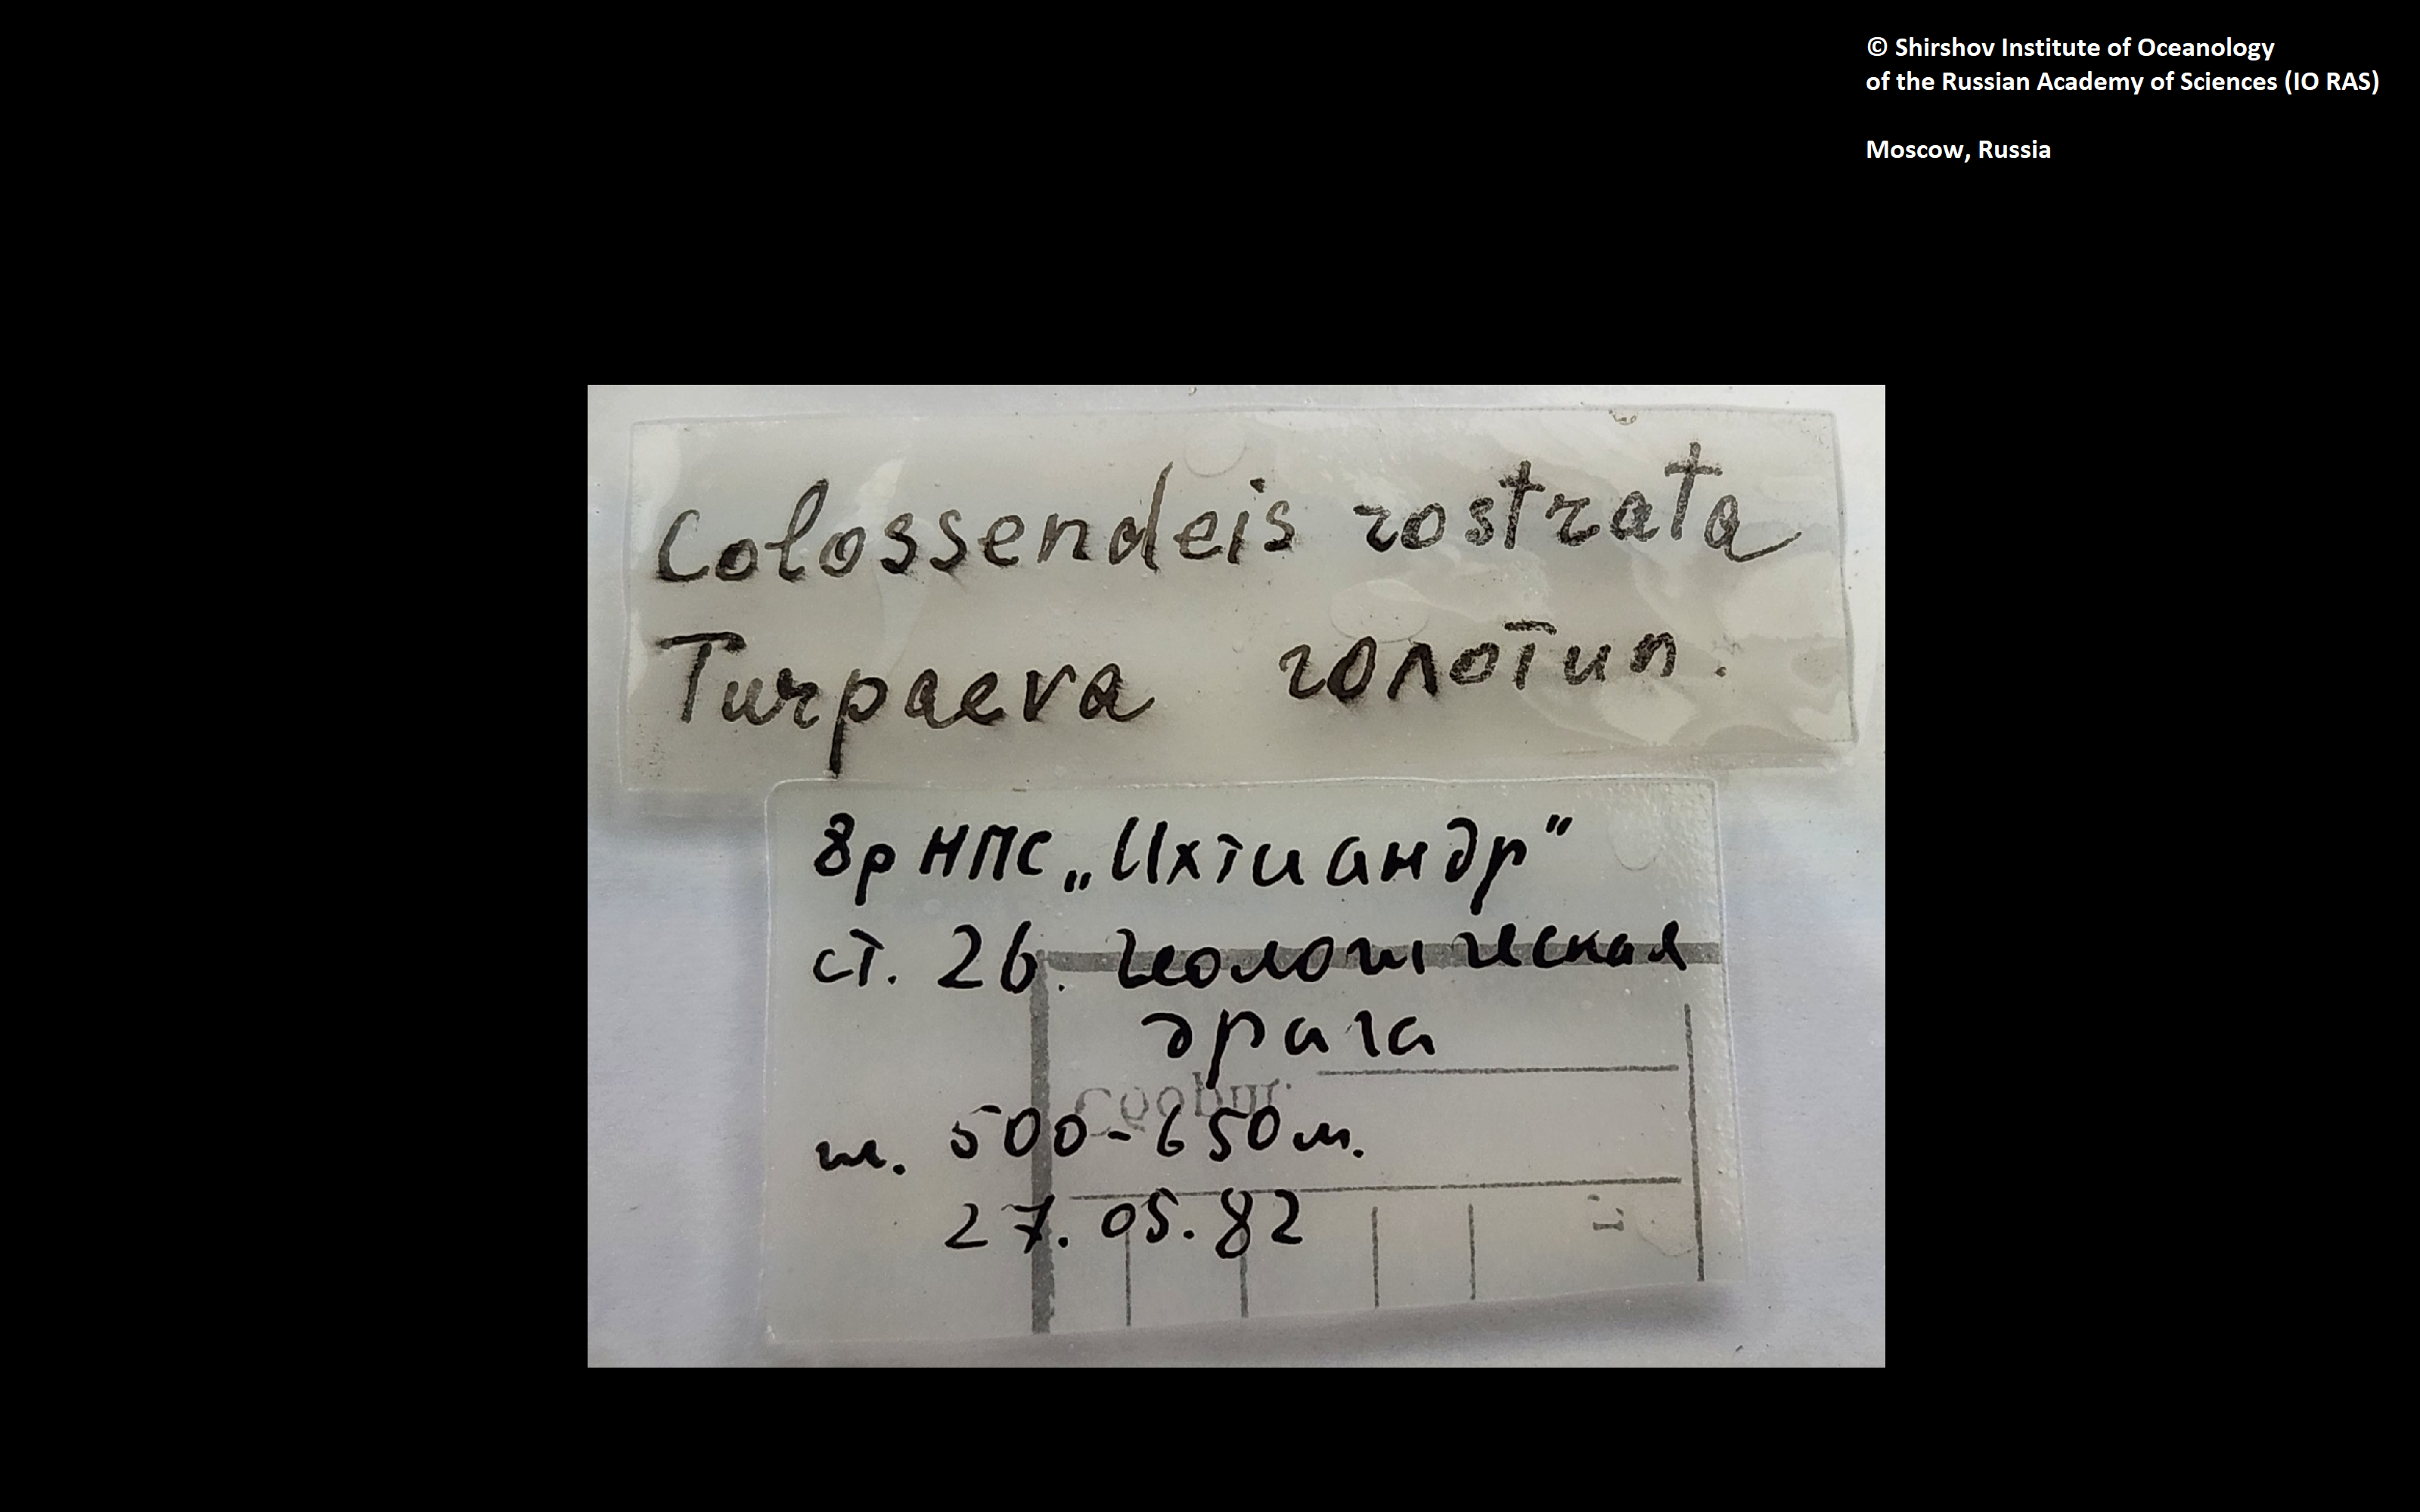 © Shirshov Institute of Oceanology
of the Russian Academy of Sciences (IO RAS)
Moscow, Russia
Colossendeis rostrata
Turpaeva голотип.
8р НПС „Ихтиандр"
ст. 26. Геологическая
драга
гл. 500-650м.
27.05.82